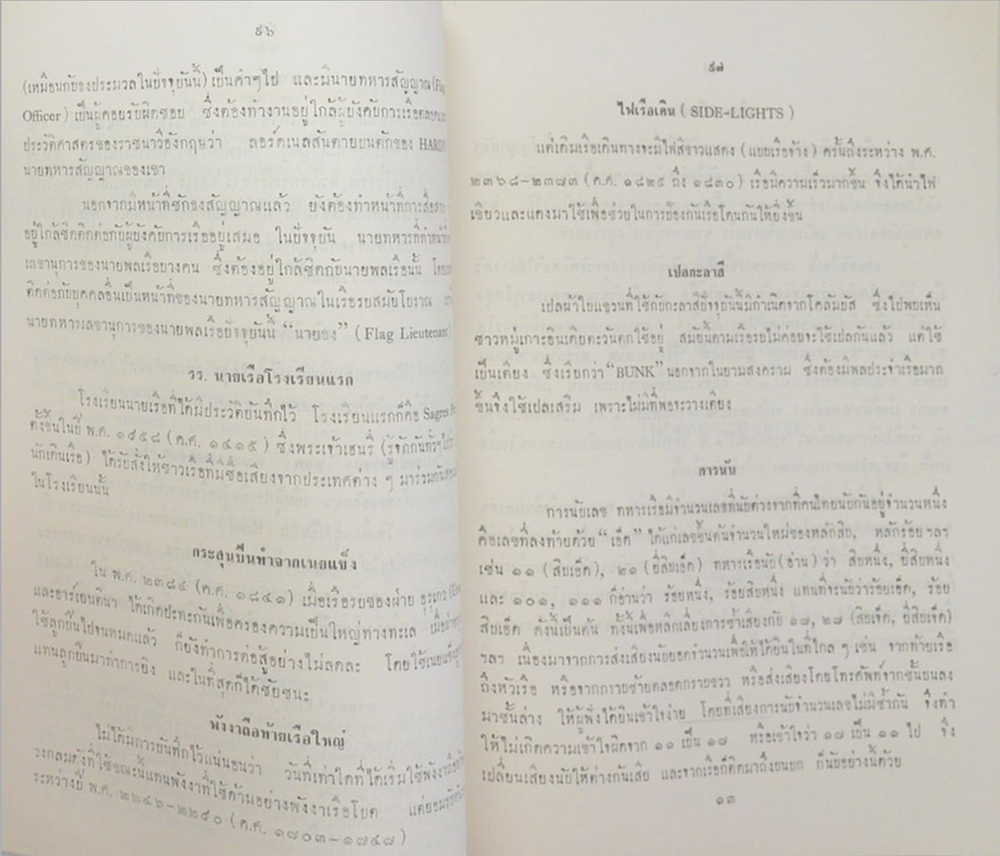 ๙๖
(เหมือนกับองประมวลในปัจจุบันนี้) เป็นคำๆไป และมีนายทหารสัญญาณ
Officer) เป็นผู้คอยรับผิดชอบ ซึ่งต้องทำงานอยู่ใกล้ผู้บังคับการเรือตลอด
ประวัติศาสตร์ของราชนาวีอังกฤษว่า ลอร์ดเนลสันตายบนตักของ HARDY
นายทหารสัญญาณของเขา
นอกจากมีหน้าที่ชักธงสัญญาณแล้ว ยังต้องทำหน้าที่การสื่อสาร
อยู่ใกล้ชิดติดต่อกับผู้บังคับการเรืออยู่เสมอ ในปัจจุบัน นายทหารที่ทำหน้าที่
เลขานุการของนายพลเรือบางคน ซึ่งต้องอยู่ใกล้ชิดกับนายพลเรือนั้น
ติดต่อกับบุคคลอื่นเป็นหน้าที่ของนายทหารสัญญาณในเรือรบสมัยโบราณ
นายทหารเลขานุการของนายพลเรือปัจจุบันนี้ “นายธง” (Flag Lieutenant)
รร. นายเรือโรงเรียนแรก
โรงเรียนนายเรือที่ได้มีประวัติบันทึกไว้ โรงเรียนแรกก็คือ Sagres
ตั้งขึ้นในปี พ.ศ. ๑๙๕๘ (ค.ศ. ๑๔๑๕) ซึ่งพระเจ้าเฮนรี่ (รู้จักกันทั่วๆไปว่า
นักเดินเรือ) ได้รับสั่งให้ชาวเรือที่มีชื่อเสียงจากประเทศต่าง ๆ มาร่วมกัน
ในโรงเรียนนั้น
กระสุนปืนทำจากเนยแข็ง
ใน พ.ศ. ๒๓๘๔ (ค.ศ. ๑๘๔๑) เมื่อเรือรบของฝ่าย อุรุเกว
และอาร์เยนตินา ได้เกิดปะทะกันเพื่อครองความเป็นใหญ่ทางทะเล
ใช้ลูกปืนไปจนหมดแล้ว ก็ยังทำการต่อสู้อย่างไม่ลดละ โดยใช้เนยแข็ง
แทนลูกปืนมาทำการยิง และในที่สุดก็ได้ชัยชนะ
พังงาถือท้ายเรือใหญ่
ไม่ได้มีการบันทึกไว้แน่นอนว่า วันที่เท่าใดที่ได้เริ่มใช้พังงาถือท้าย
วงกลมดังที่ใช้ขณะนี้แทนพังงาที่ใช้ด้ามอย่างพังงาเรือโบต แต่ยอมรับ
ระหว่างปี พ.ศ. ๒๒๔๖-๒๒๙๐ (ค.ศ. ๑๗๐๓-๑๗๔๗)
๙๗
ไฟเรือเดิน ( SIDE-LIGHTS )
แต่เดิมเรือเดินทางจะมีไฟสีขาวแสดง (แบบเรือจ้าง) ครั้นถึงระหว่าง พ.ศ.
๒๓๖๘-๒๓๗๓ (ค.ศ. ๑๘๒๕ ถึง ๑๘๓๐) เรือมีความเร็วมากขึ้น จึงได้นำไฟ
เขียวและแดงมาใช้เพื่อช่วยในการป้องกันเรือโดนกันให้ยิ่งขึ้น
เปลกะลาสี
เปลผ้าใบแขวนที่ใช้กับกะลาสีปัจจุบันนี้มีกำเนิดจากโคลัมบัส ซึ่งไปพบเห็น
ชาวหมู่เกาะอินเดียตะวันตกใช้อยู่ สมัยนี้ตามเรือรบไม่ค่อยจะใช้เปลกันแล้ว แต่ใช้
เป็นเตียง ซึ่งเรียกว่า“BUNK” นอกจากในยามสงคราม ซึ่งต้องมีพลประจำเรือมาก
ขึ้นจึงใช้เปลเสริม เพราะไม่มีที่พอจะวางเตียง
การนับ
การนับเลข ทหารเรือมีจำนวนเลขที่นับต่างจากที่คนไทยนับกันอยู่จำนวนหนึ่ง
คือเลขที่ลงท้ายด้วย “เอ็ด” ได้แก่เลขขึ้นต้นจำนวนใหม่ของหลักสิบ, หลักร้อย ฯลฯ
เช่น ๑๑ (สิบเอ็ด), ๒๑ (ยี่สิบเอ็ด) ทหารเรือนับ(อ่าน) ว่า สิบหนึ่ง, ยี่สิบหนึ่ง
และ ๑๐๑, ๑๑๑ ก็อ่านว่า ร้อยหนึ่ง, ร้อยสิบหนึ่ง แทนที่จะนับว่าร้อยเอ็ด, ร้อย
สิบเอ็ด ดังนี้เป็นต้น ทั้งนี้เพื่อหลีกเลี่ยงการซ้ำเสียงกับ ๑๗, ๒๗ (สิบเจ็ด, ยี่สิบเจ็ด)
ฯลฯ เนื่องมาจากการส่งเสียงนับยอดจำนวนเพื่อให้ได้ยินในที่ไกล ๆ เช่น จากท้ายเรือ
ถึงหัวเรือ หรือจากกราบซ้ายตลอดกราบขวา หรือส่งเสียงโดยโทรศัพท์จากชั้นบนลง
มาชั้นล่าง ให้ผู้ฟังได้ยินเข้าใจง่าย โดยที่เสียงการนับจำนวนเลขไม่มีซ้ำกัน จึงทำ
ให้ไม่เกิดความเข้าใจผิดจาก ๑๑ เป็น ๑๗ หรือเข้าใจว่า ๑๗ เป็น ๑๑ ไป จึง
เปลี่ยนเสียงนับให้ต่างกันเสีย และจากเรือก็ติดมาถึงบนบก ก็นับอย่างนี้ด้วย
๑๓